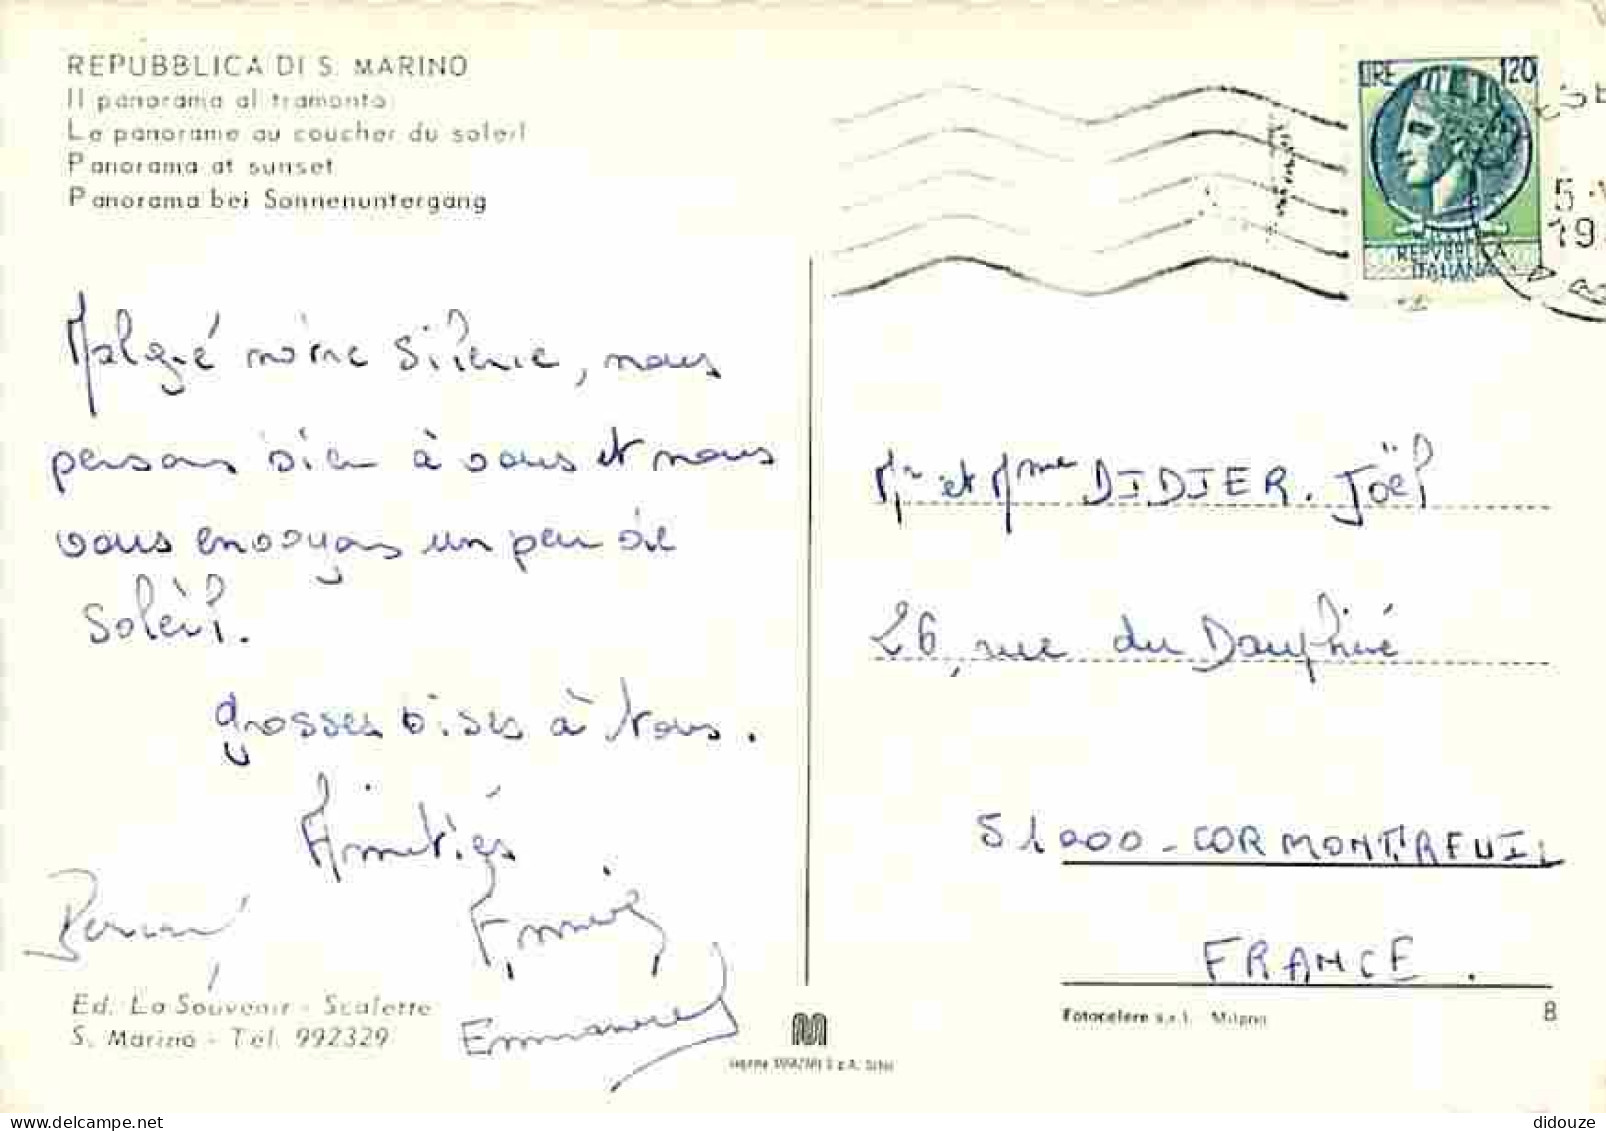 REPUBBLICA DI S. MARINO
Il panorama al tramonto
Le panorame au coucher du soleil
Panorama at sunset
Panorama bei Sonnenuntergang
LIRE 120
REPVBBLICA
ITALIANA
Malgré nôtre silence, nous
pensons bien à vous et nous
vous envoyons un peu de
soleil.
grosses bises à tous.
Amitiés
Emmanuel
Mr et Mme DIDIER. Joël
26, rue du Dauphiné
51000 - CORMONTREUIL
FRANCE.
Ed. La Souvenir - Scalette
S. Marino - Tel. 992329
Fotocelere s.r.l. Milano
8
delcampe.net
didouze